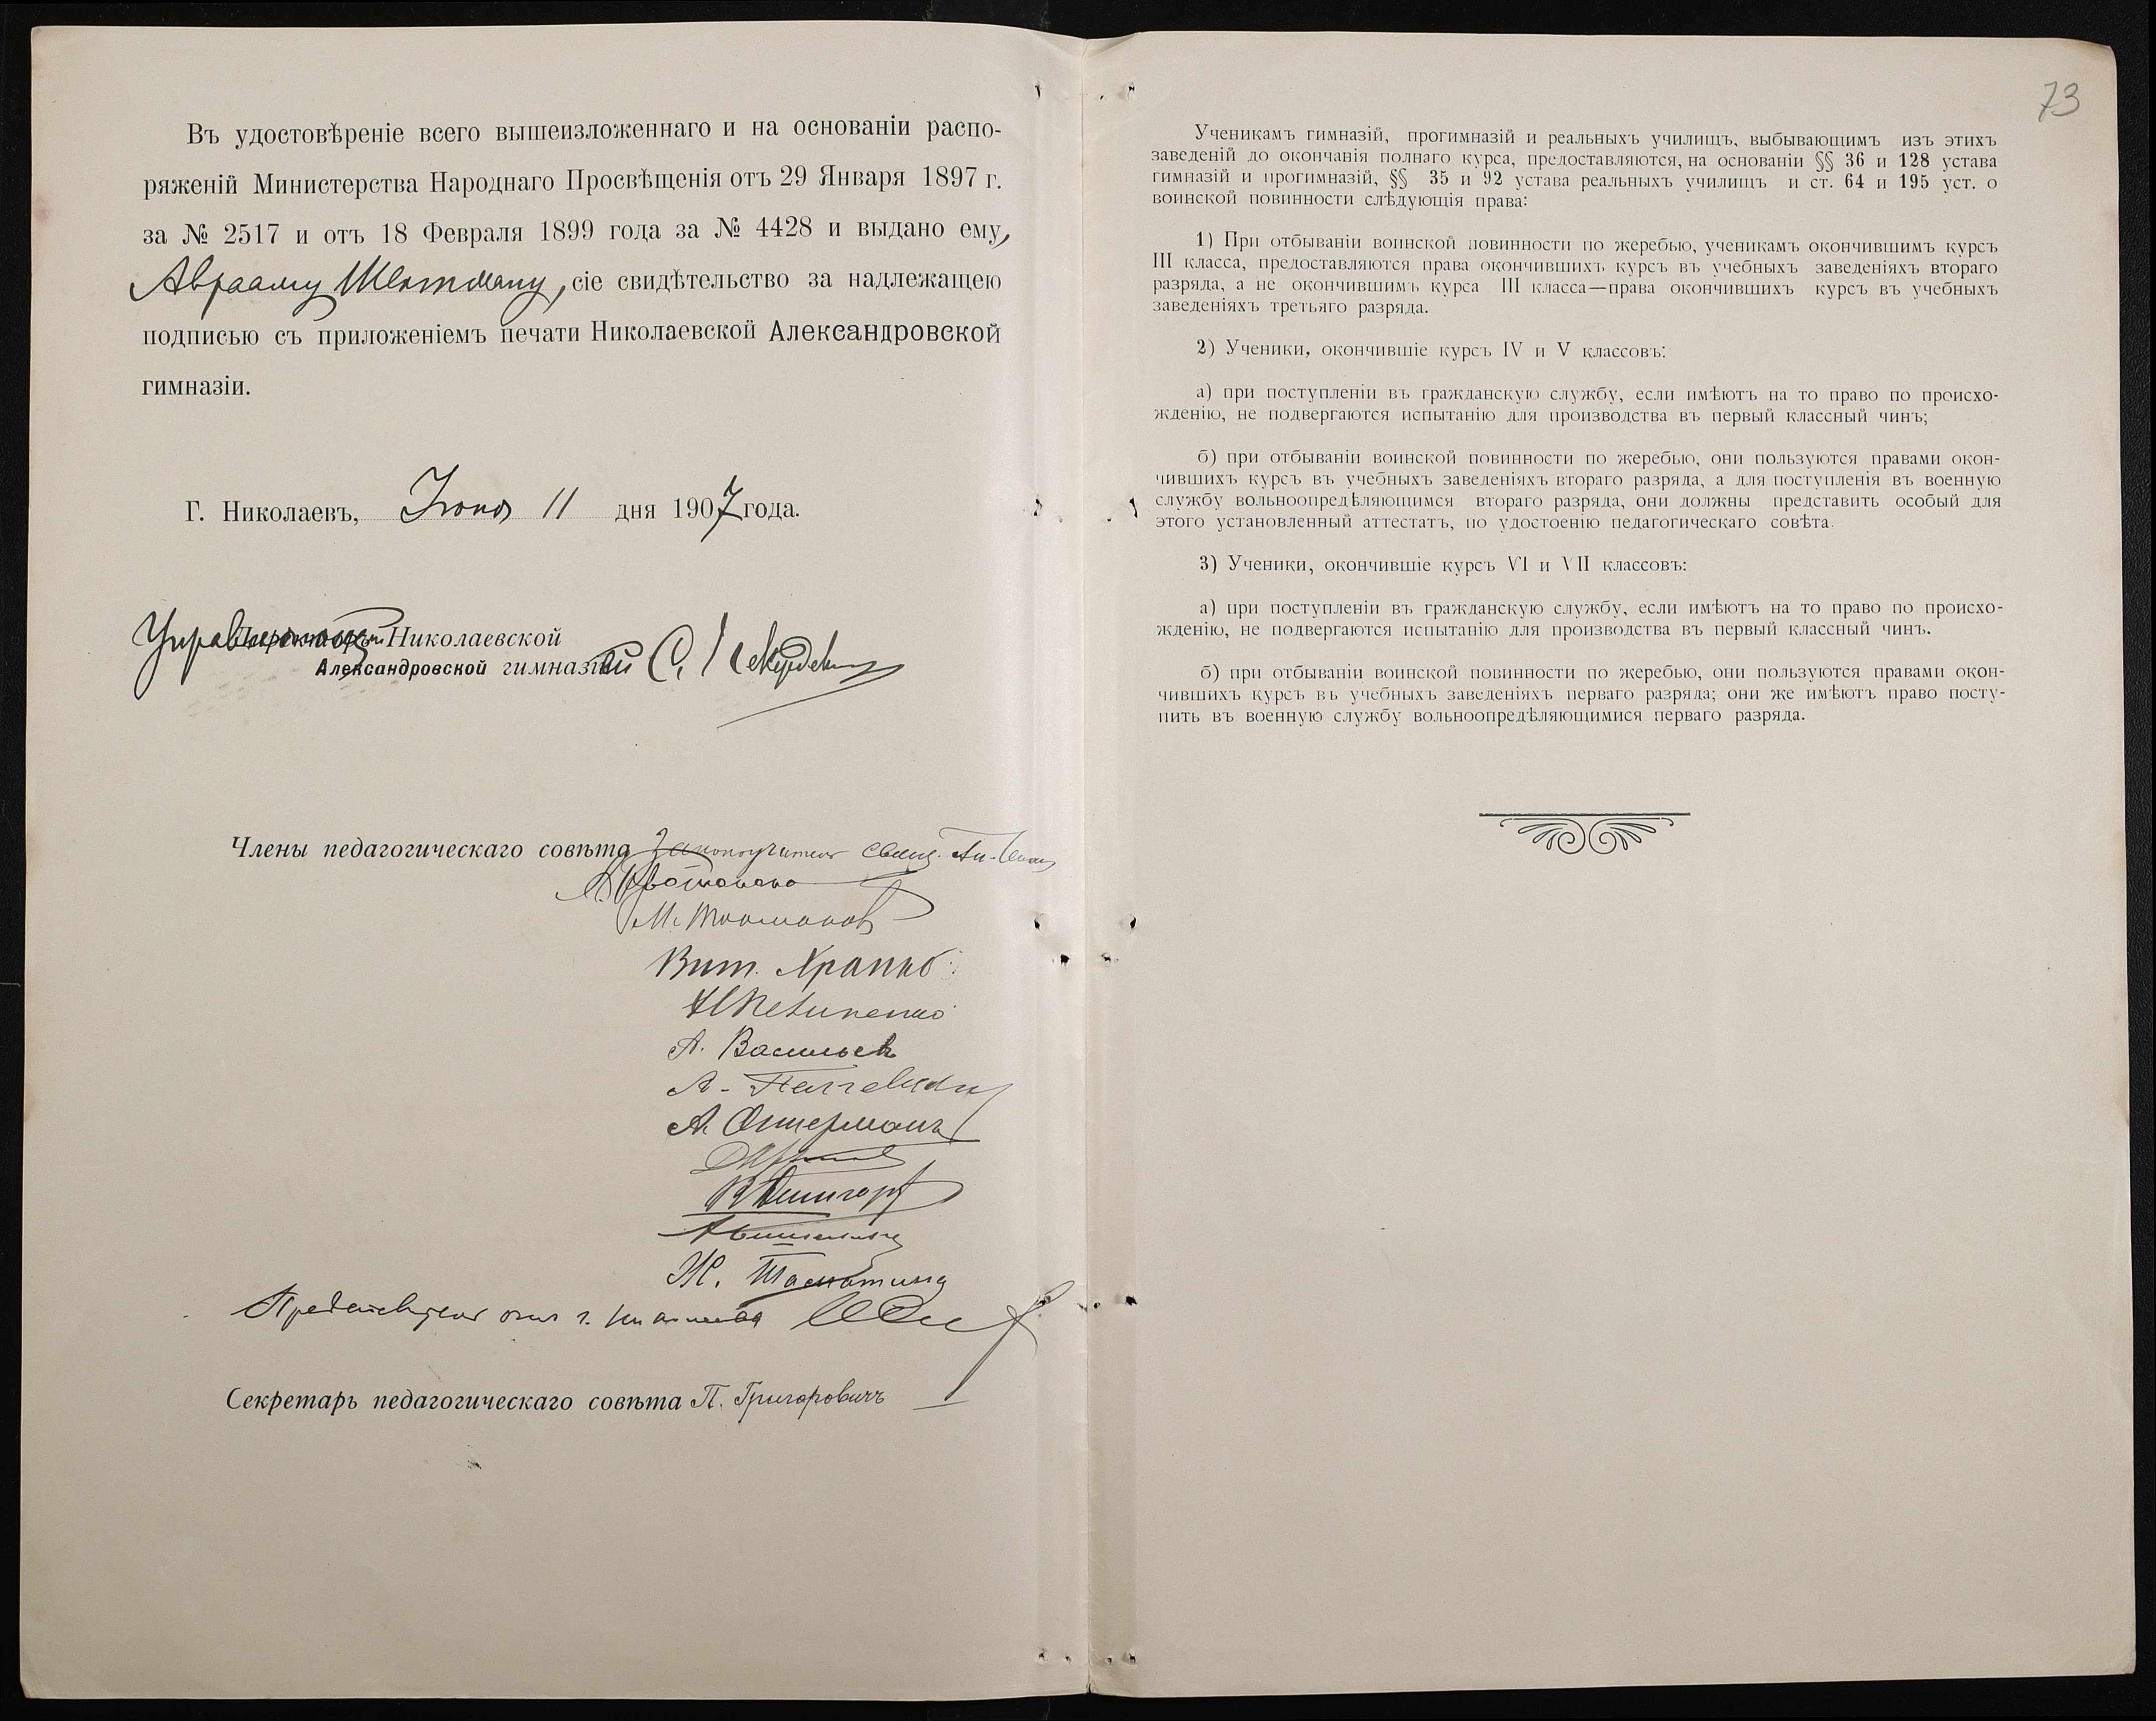 Въ удостовѣреніе всего вышеизложеннаго и на основаніи распо-
ряженій Министерства Народнаго Просвѣщенія отъ 29 Января 1897 г.
за № 2517 и отъ 18 Февраля 1899 года за № 4428 и выдано ему,
Аврааму, сіе свидѣтельство за надлежащею
подписью съ приложеніемъ печати Николаевской Александровской
гимназіи.
Г. Николаевъ, Іюня 11 дня 1907 года.
Управляющій Николаевской
Александровской гимназіей С.
Члены педагогическаго совѣта Законоучитель свящ.
М.
Вит. Храпко
А. Васильевъ
А.
А. Оттерманъ
Ж.
П. Григоровичъ
Секретарь педагогическаго совѣта П. Григоровичъ
73
Ученикамъ гимназій, прогимназій и реальныхъ училищъ, выбывающимъ изъ этихъ
заведеній до окончанія полнаго курса, предоставляются, на основаніи §§ 36 и 128 устава
гимназій и прогимназій, §§ 35 и 92 устава реальныхъ училищъ и ст. 64 и 195 уст. о
воинской повинности слѣдующія права:
1) При отбываніи воинской повинности по жеребью, ученикамъ окончившимъ курсъ
III класса, предоставляются права окончившихъ курсъ въ учебныхъ заведеніяхъ втораго
разряда, а не окончившимъ курса III класса—права окончившихъ курсъ въ учебныхъ
заведеніяхъ третьяго разряда.
2) Ученики, окончившіе курсъ IV и V классовъ:
а) при поступленіи въ гражданскую службу, если имѣютъ на то право по происхо-
жденію, не подвергаются испытанію для производства въ первый классный чинъ;
б) при отбываніи воинской повинности по жеребью, они пользуются правами окон-
чившихъ курсъ въ учебныхъ заведеніяхъ втораго разряда, а для поступленія въ военную
службу вольноопредѣляющимся втораго разряда, они должны представить особый для
этого установленный аттестатъ, по удостоенію педагогическаго совѣта.
3) Ученики, окончившіе курсъ VI и VII классовъ:
а) при поступленіи въ гражданскую службу, если имѣютъ на то право по происхо-
жденію, не подвергаются испытанію для производства въ первый классный чинъ.
б) при отбываніи воинской повинности по жеребью, они пользуются правами окон-
чившихъ курсъ въ учебныхъ заведеніяхъ перваго разряда; они же имѣютъ право посту-
пить въ военную службу вольноопредѣляющимися перваго разряда.